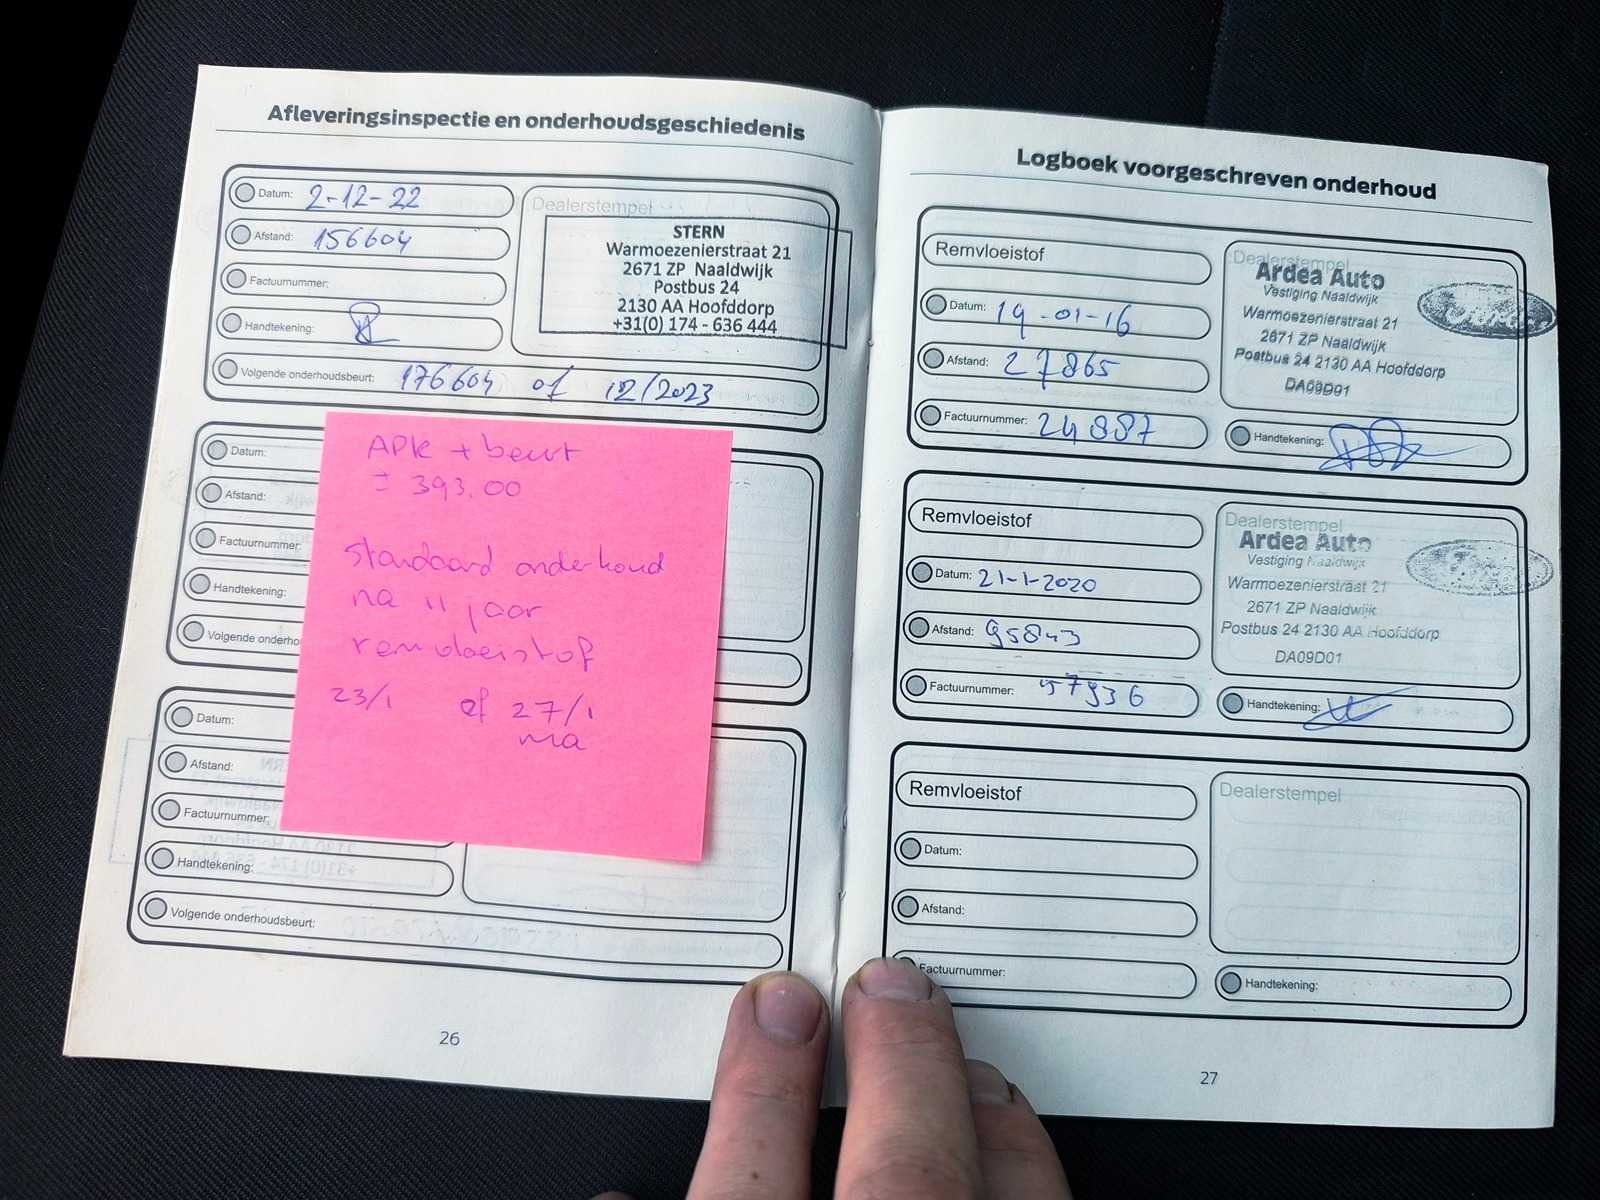 Afleveringsinspectie en onderhoudsgeschiedenis
Datum: 2-12-22
Afstand: 156604
Factuurnummer:
Handtekening:
Volgende onderhoudsbeurt: 176604 of 12/2023
Dealerstempel
STERN
Warmoezenierstraat 21
2671 ZP Naaldwijk
Postbus 24
2130 AA Hoofddorp
+31(0) 174 - 636 444
Datum:
Afstand:
Factuurnummer:
Handtekening:
Volgende onderho
APK + beurt
± 393,00
standaard onderhoud
na 11 jaar
remvloeistof
23/1 of 27/1
ma
Datum:
Afstand:
Factuurnummer:
Handtekening:
Volgende onderhoudsbeurt:
26
Logboek voorgeschreven onderhoud
Remvloeistof
Datum: 19-01-16
Afstand: 27865
Factuurnummer: 24887
Dealerstempel
Ardea Auto
Vestiging Naaldwijk
Warmoezenierstraat 21
2671 ZP Naaldwijk
Postbus 24 2130 AA Hoofddorp
DA09D01
Handtekening:
Remvloeistof
Datum: 21-1-2020
Afstand: 95843
Factuurnummer: 57936
Dealerstempel
Ardea Auto
Vestiging Naaldwijk
Warmoezenierstraat 21
2671 ZP Naaldwijk
Postbus 24 2130 AA Hoofddorp
DA09D01
Handtekening:
Remvloeistof
Datum:
Afstand:
Factuurnummer:
Dealerstempel
Handtekening:
27